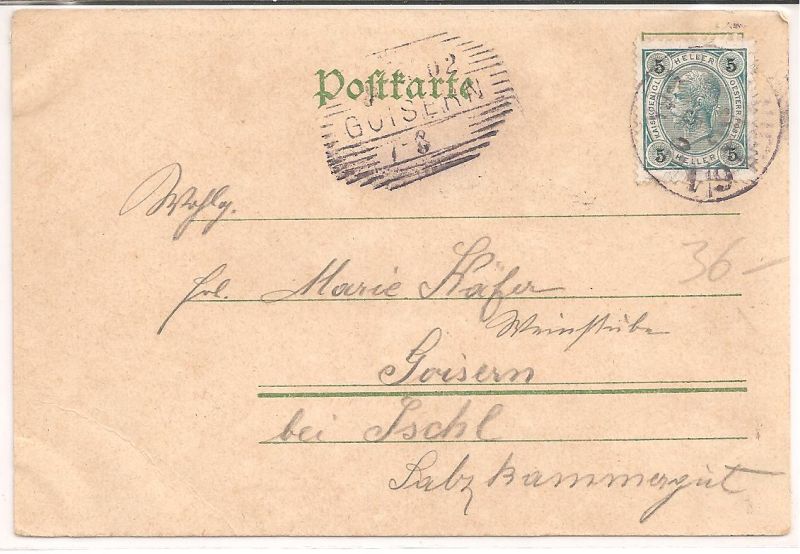 Postkarte
02
GOISERN
7-8
5 HELLER 5
KAIS. KOENIGL. OESTERR. POST
5 HELLER 5
Wohlg.
Frl. Marie Käfer
Weinstube
Goisern
bei Ischl
Salzkammergut
36-